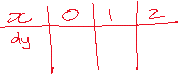 x 0 1 2
dy